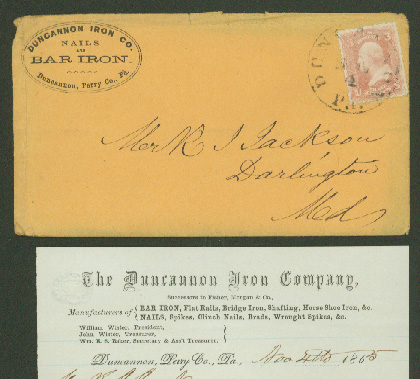 DUNCANNON IRON CO.
NAILS
AND
BAR IRON.
Duncannon, Perry Co., Pa.
PA.
Mr R I Jackson
Darlington
Md
The Duncannon Iron Company,
Successors to Fisher, Morgan & Co.,
Manufacturers of { BAR IRON, Flat Rails, Bridge Iron, Shafting, Horse Shoe Iron, &c.
NAILS, Spikes, Clinch Nails, Brads, Wrought Spikes, &c.
William Wister, President,
John Wister, Treasurer,
Wm. E. S. Baker, Secretary & Ass't Treasurer.
Duncannon, Perry Co., Pa., Nov 4th 1865